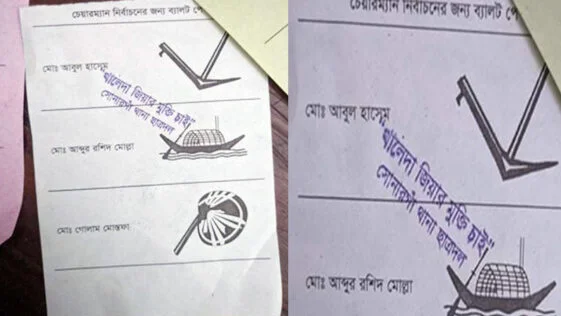 চেয়ারম্যান নির্বাচনের জন্য ব্যালট পে
মোঃ আবুল হাসেম
খালেদা জিয়ার মুক্তি চাই"
সোনারগাঁ থানা ছাত্রদল
মোঃ আব্দুর রশিদ মোল্লা
মোঃ গোলাম মোস্তফা
চেয়ারম্যান নির্বাচনের জন্য ব্যালট পে
মোঃ আবুল হাসেম
খালেদা জিয়ার মুক্তি চাই"
সোনারগাঁ থানা ছাত্রদল
মোঃ আব্দুর রশিদ মোল্লা